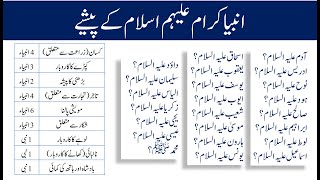 انبیا کرام علیہم اسلام کے پیشے
آدم علیہ السلام؟
ادریس علیہ السلام؟
نوح علیہ السلام؟
ہود علیہ السلام؟
صالح علیہ السلام؟
ابراہیم علیہ السلام؟
لوط علیہ السلام؟
اسماعیل علیہ السلام؟
اسحاق علیہ السلام؟
یعقوب علیہ السلام؟
یوسف علیہ السلام؟
ایوب علیہ السلام؟
شعیب علیہ السلام؟
موسیٰ علیہ السلام؟
ہارون علیہ السلام؟
یونس علیہ السلام؟
داؤد علیہ السلام؟
سلیمان علیہ السلام؟
الیاس علیہ السلام؟
زکریا علیہ السلام؟
یحیٰ علیہ السلام؟
عیسیٰ علیہ السلام؟
محمد ﷺ؟
کسان (زراعت سے متعلق) 4 انبیاء
کپڑے کا کاروبار 3 انبیاء
بڑھئی کا پیشہ 2 انبیاء
تاجر (تجارت سے متعلق) 4 انبیاء
مویشی پالنا 6 انبیاء
شکار سے متعلق 3 انبیاء
لوہے کا کاروبار 1 نبی
نانبائی (کھانے کا کاروبار) 1 نبی
بادشاہ اور ہاتھ کی کمائی 1 نبی